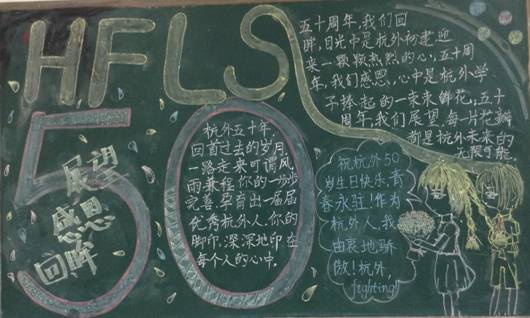 HFLS
50
展望
感恩
回眸
杭外五十年,
回首过去的岁月,
一路走来可谓风
雨兼程,你的一步步
完善,孕育出一届届
优秀杭外人,你的
脚印,深深地印在
每个人的心中。
五十周年,我们回
眸,目光中是杭外初建迎
来一颗颗热烈的心,五十周
年,我们感恩,心中是杭外学
子捧起的一束束鲜花,五十
周年,我们展望,每一片花瓣
都是杭外未来的
无限可能。
祝杭外50
岁生日快乐,青
春永驻!作为
杭外人,我
由衷地骄
傲!杭外,
fighting!